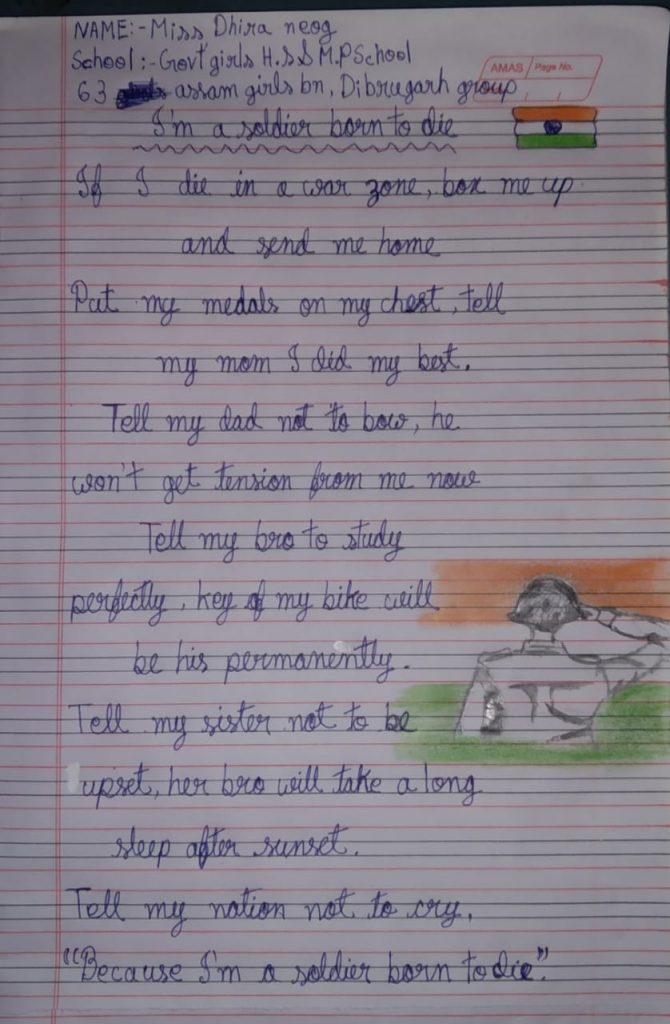 NAME:- Miss Dhira neog
School:- Govt girls H.S.S M.P School
AMAS Page No.
63 assam girls bn, Dibrugarh group
I'm a soldier born to die
If I die in a war zone, box me up
and send me home
Put my medals on my chest, tell
my mom I did my best.
Tell my dad not to bow, he
won't get tension from me now
Tell my bro to study
perfectly, key of my bike will
be his permanently.
Tell my sister not to be
upset, her bro will take a long
sleep after sunset.
Tell my nation not to cry,
"Because I'm a soldier born to die".